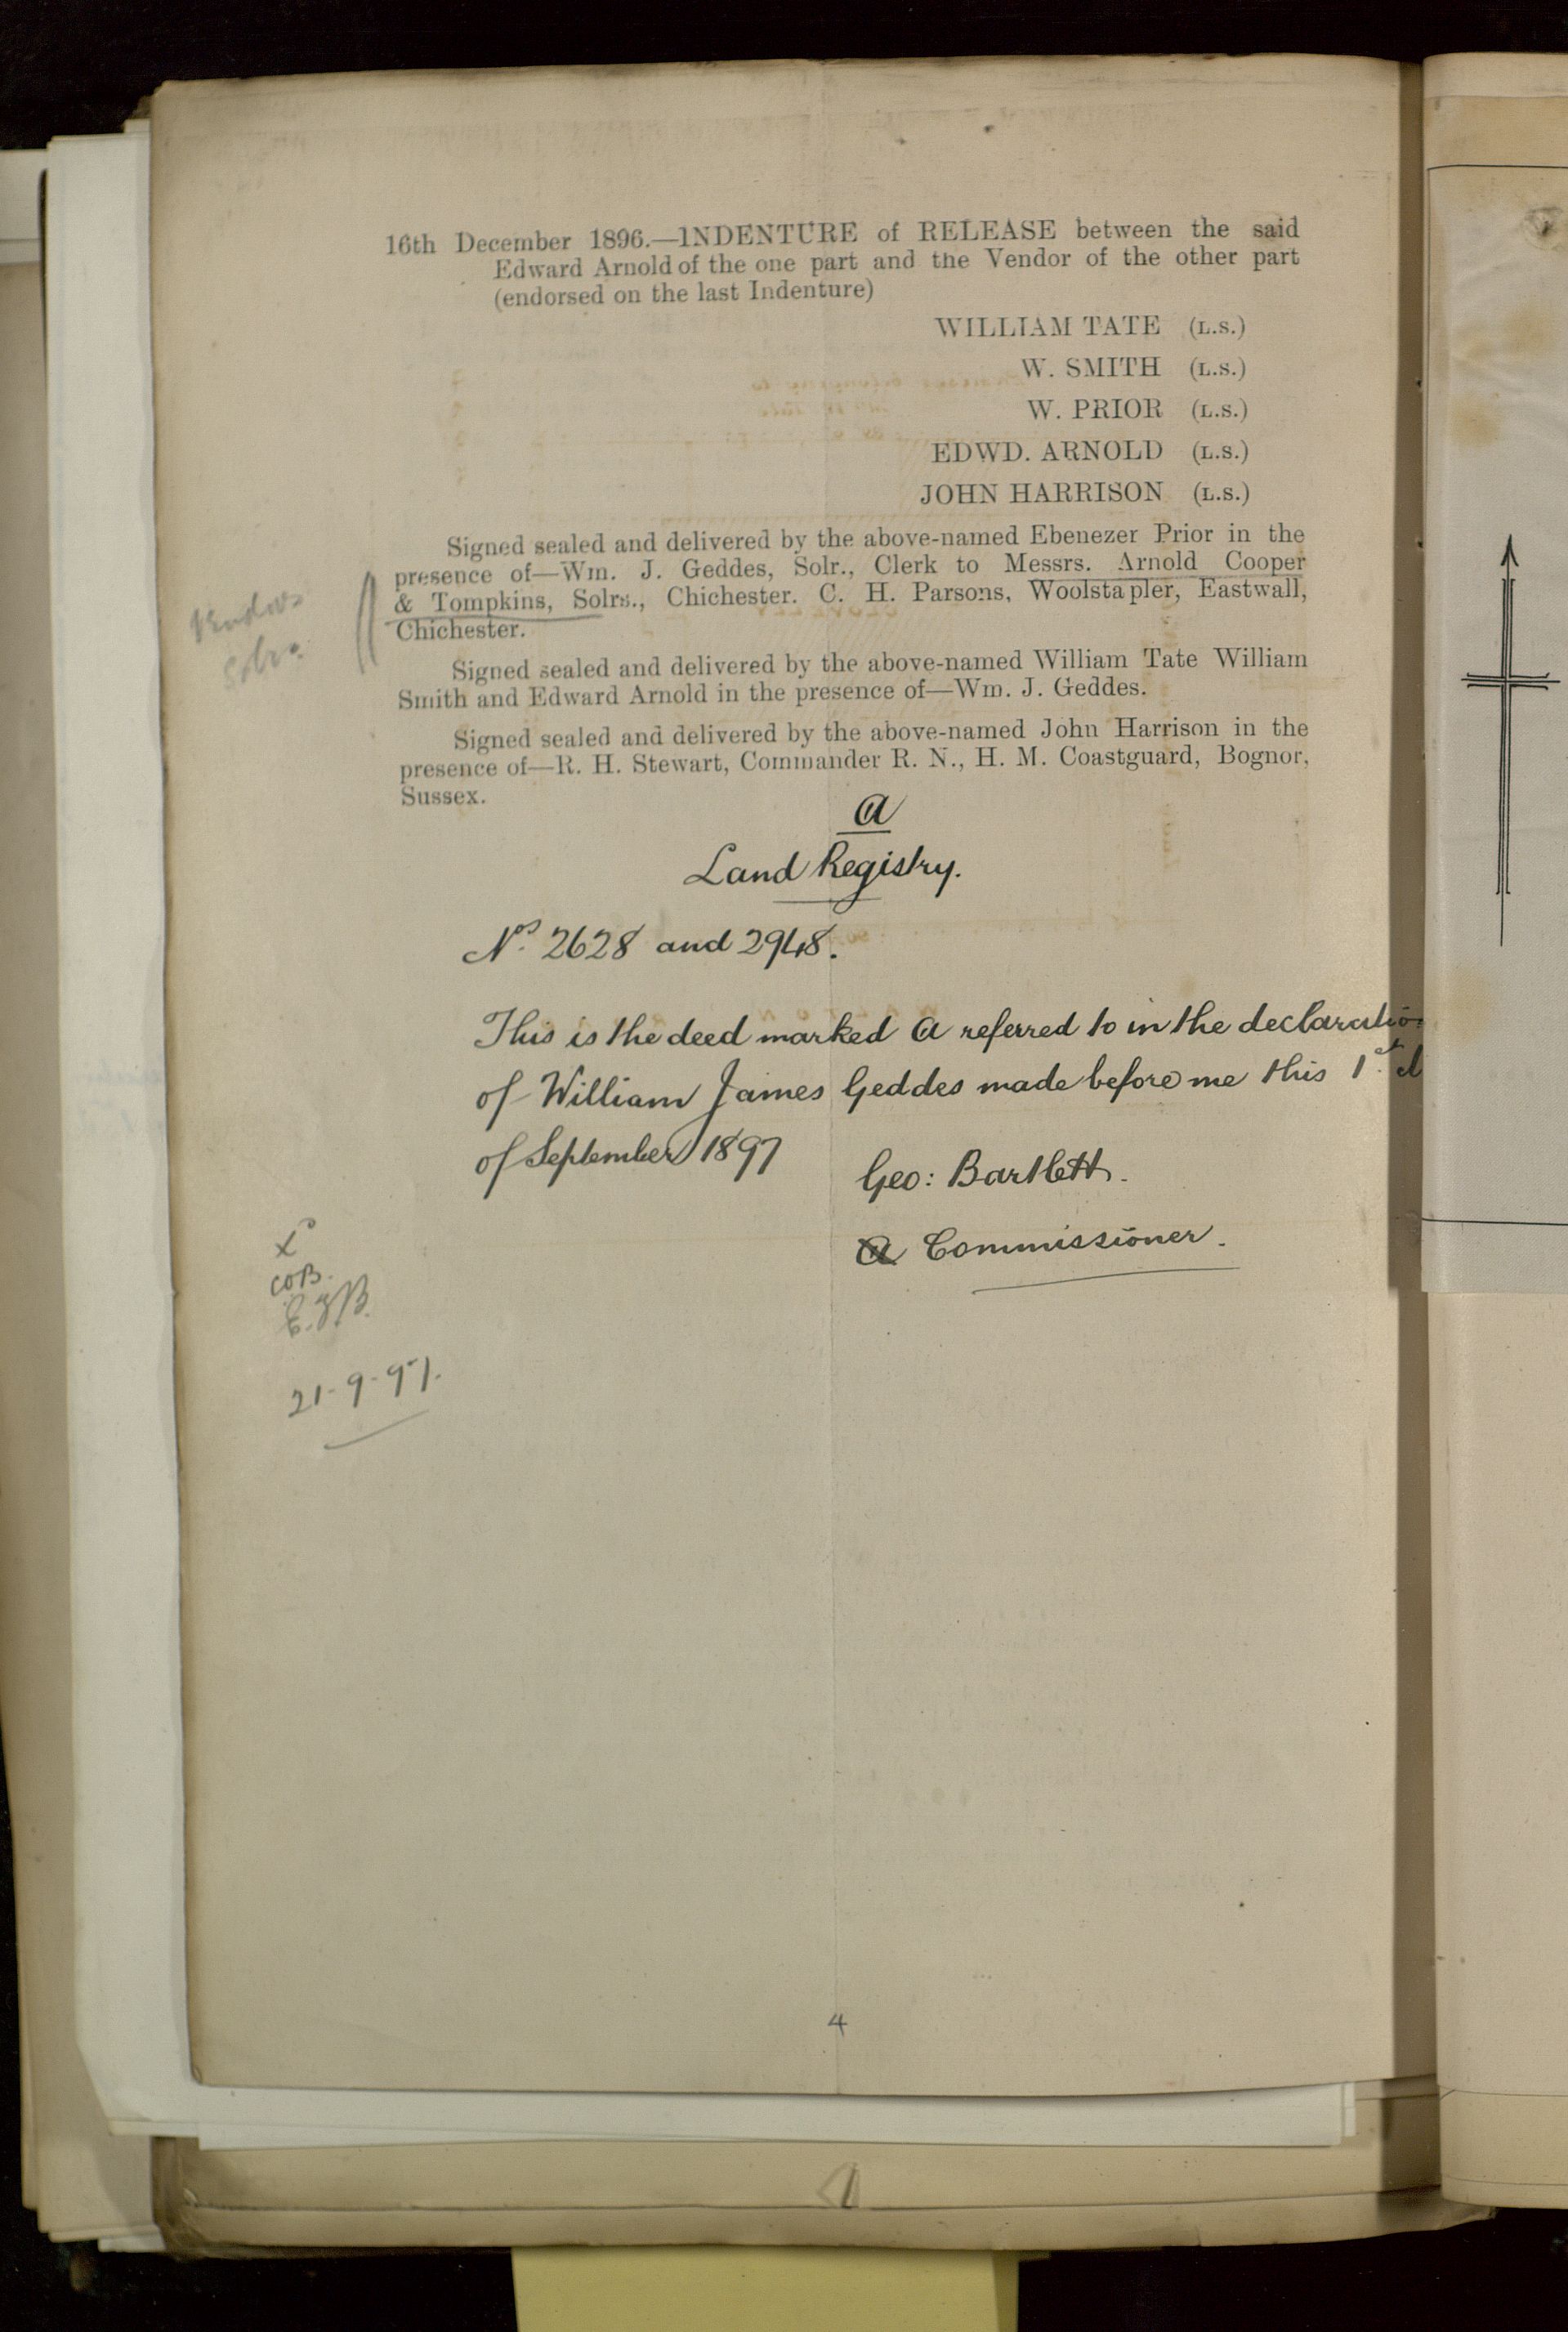 16th December 1896.—INDENTURE of RELEASE between the said
Edward Arnold of the one part and the Vendor of the other part
(endorsed on the last Indenture)
WILLIAM TATE (L.S.)
W. SMITH (L.S.)
W. PRIOR (L.S.)
EDWD. ARNOLD (L.S.)
JOHN HARRISON (L.S.)
Signed sealed and delivered by the above-named Ebenezer Prior in the
presence of—Wm. J. Geddes, Solr., Clerk to Messrs. Arnold Cooper
& Tompkins, Solrs., Chichester. C. H. Parsons, Woolstapler, Eastwall,
Chichester.
Vendors
Solrs.
Signed sealed and delivered by the above-named William Tate William
Smith and Edward Arnold in the presence of—Wm. J. Geddes.
Signed sealed and delivered by the above-named John Harrison in the
presence of—R. H. Stewart, Commander R. N., H. M. Coastguard, Bognor,
Sussex.
A
Land Registry.
Nos. 2628 and 2948.
This is the deed marked A referred to in the declaration
of William James Geddes made before me this 1st d
of September 1897
Geo: Bartlett.
A Commissioner.
21-9-97.
4